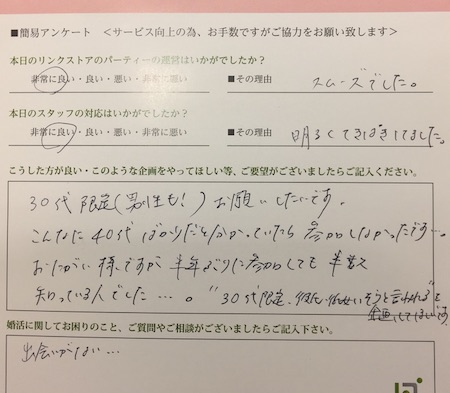 ■簡易アンケート ＜サービス向上の為、お手数ですがご協力をお願い致します＞
本日のリンクストアのパーティーの運営はいかがでしたか？
非常に良い・良い・悪い・非常に悪い ■その理由 スムーズでした。
本日のスタッフの対応はいかがでしたか？
非常に良い・良い・悪い・非常に悪い ■その理由 明るくてきぱきしてました。
こうした方が良い・このような企画をやってほしい等、ご要望がございましたらご記入ください。
30代限定(男性も！)お願いしたいです。
こんなに40代ばかりだと分かっていたら参加しなかったです…。
おたがい様ですが半年ぶりに参加しても半数
知っている人でした…。"30代限定、彼氏・彼女いそうと言われる"を
企画してほしいです
婚活に関してお困りのこと、ご質問やご相談がございましたらご記入下さい。
出会いがない…